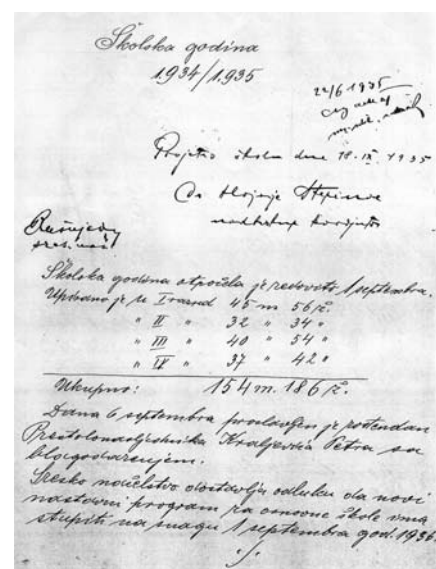 Školska godina
1934/1935
22/6 1935
Posjetio školu dne 18. IX. 1935
Dr Alojzije Stepinac
nadbiskup koadjutor
Školska godina otpočela je redovito 1 septembra.
Upisano je u I razred 45 m 56 ž.
" II " 32 " 34 "
" III " 40 " 54 "
" IV " 37 " 42 "
Ukupno: 154 m. 186 ž.
Dana 6 septembra proslavljen je rođendan
Prestolonasljednika Kraljevića Petra sa
blagodarenjem.
Sresko načelstvo dostavlja odluku da novi
nastavni program za osnovne škole ima
stupiti na snagu 1 septembra god. 1936.